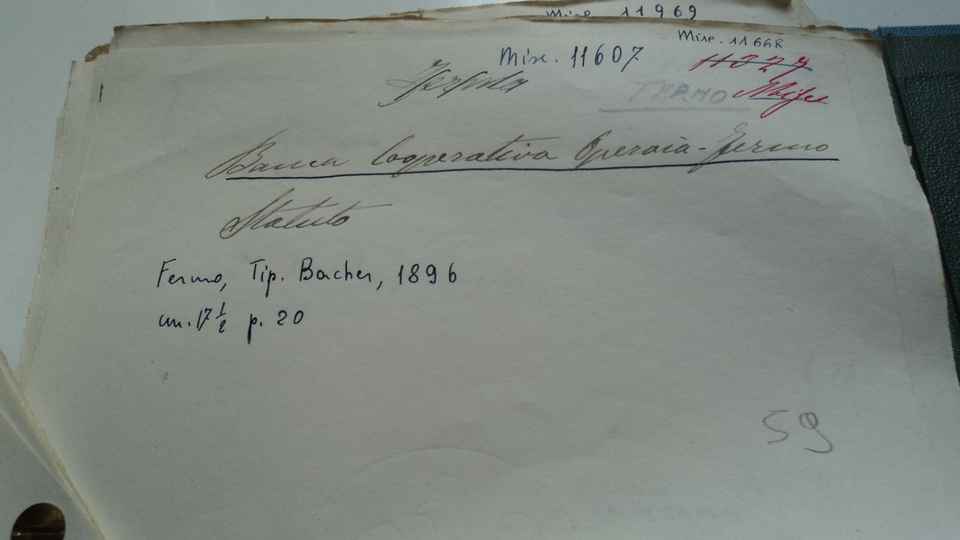 Misc. 11969
Misc. 11668
Misc. 11607
FERMO
Banca Cooperativa Operaia - Fermo
Statuto
Fermo, Tip. Bacher, 1896
cm. 17 ½ p. 20
59